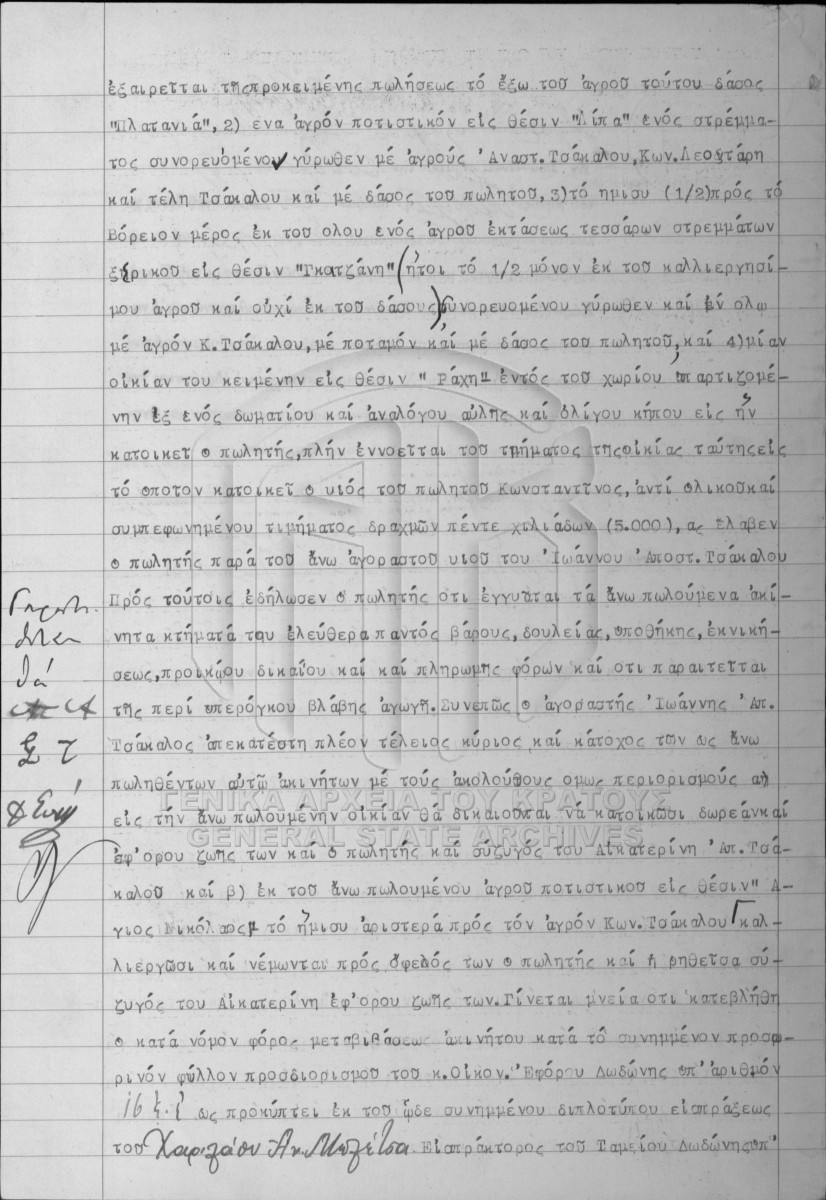 ἐξαιρεῖται τῆςπροκειμένης πωλήσεως τό ἔξω τοῦ ἀγροῦ τούτου δάσος
"Πλατανιά", 2) ἕνα ἀγρόν ποτιστικόν εἰς θέσιν "Λίπα" ἑνός στρέμμα-
τος συνορευόμενον γύρωθεν μέ ἀγρούς Ἀναστ. Τσάκαλου, Κων. Λεοντάρη
καί τέλη Τσάκαλου καί μέ δάσος τοῦ πωλητοῦ, 3)τό ἥμισυ (1/2)πρός τό
Βόρειον μέρος ἐκ τοῦ ὅλου ἑνός ἀγροῦ ἐκτάσεως τεσσάρων στρεμμάτων
ξηρικοῦ εἰς θέσιν "Γκατζάνη" (ἤτοι τό 1/2 μόνον ἐκ τοῦ καλλιεργησί-
μου ἀγροῦ καί οὐχί ἐκ τοῦ δάσους) συνορευομένου γύρωθεν καί ἐν ὅλῳ
μέ ἀγρόν Κ. Τσάκαλου, μέ ποταμόν καί μέ δάσος τοῦ πωλητοῦ, καί 4)μίαν
οἰκίαν του κειμένην εἰς θέσιν " Ράχη" ἐντός τοῦ χωρίου, ἀπαρτιζομέ-
νην ἐξ ἑνός δωματίου καί ἀναλόγου αὐλῆς καί ὀλίγου κήπου εἰς ἥν
κατοικεῖ ὁ πωλητής, πλήν ἐννοεῖται τοῦ τμήματος τῆςοἰκίας ταύτηςεἰς
τό ὁποῖον κατοικεῖ ὁ υἱός τοῦ πωλητοῦ Κωνσταντῖνος, ἀντί ὁλικοῦκαί
συμπεφωνημένου τιμήματος δραχμῶν πέντε χιλιάδων (5.000), ἅς ἔλαβεν
ὁ πωλητής παρά τοῦ ἄνω ἀγοραστοῦ υἱοῦ του Ἰωάννου Ἀποστ. Τσάκαλου
Πρός τούτοις ἐδήλωσεν ὁ πωλητής ὅτι ἐγγυᾶται τά ἄνω πωλούμενα ἀκί-
νητα κτήματά του ἐλεύθερα παντός βάρους, δουλείας, ὑποθήκης, ἐκνική-
σεως, προικῴου δικαίου καί καί πληρωμῆς φόρων καί ὅτι παραιτεῖται
τῆς περί ὑπερόγκου βλάβης ἀγωγῆ. Συνεπῶς ὁ ἀγοραστής Ἰωάννης Ἀπ.
Τσάκαλος ἀπεκατέστη πλέον τέλειος κύριος καί κάτοχος τῶν ὡς ἄνω
πωληθέντων αὐτῷ ἀκινήτων μέ τούς ἀκολούθους ὅμως περιορισμούς α)
εἰς τήν ἄνω πωλουμένην οἰκίαν θά δικαιοῦνται νά κατοικῶσι δωρεάνκαί
ἐφ'ὅρου ζωῆς των καί ὁ πωλητής καί σύζυγός του Αἰκατερίνη Ἀπ. Τσά-
καλου καί β) ἐκ τοῦ ἄνω πωλουμένου ἀγροῦ ποτιστικοῦ εἰς θέσιν" Ἅ-
γιος Νικόλαος" τό ἥμισυ ἀριστερά πρός τόν ἀγρόν Κων. Τσάκαλου Γ καλ-
λιεργῶσι καί νέμωνται πρός ὄφελός των ὁ πωλητής καί ἡ ρηθεῖσα σύ-
ζυγός του Αἰκατερίνη ἐφ'ὅρου ζωῆς των. Γίνεται μνεία ὅτι κατεβλήθη
ὁ κατά νόμον φόρος μεταβιβάσεως ἀκινήτου κατά τό συνημμένον προσω-
ρινόν φύλλον προσδιορισμοῦ τοῦ κ. Οἰκον. Ἐφόρου Δωδώνης ὑπ' ἀριθμόν
ὡς προκύπτει ἐκ τοῦ ὧδε συνημμένου διπλοτύπου εἰσπράξεως
τοῦ Εἰσπράκτορος τοῦ Ταμείου Δωδώνηςὑπ'
θά
ΓΕΝΙΚΑ ΑΡΧΕΙΑ ΤΟΥ ΚΡΑΤΟΥΣ
GENERAL STATE ARCHIVES